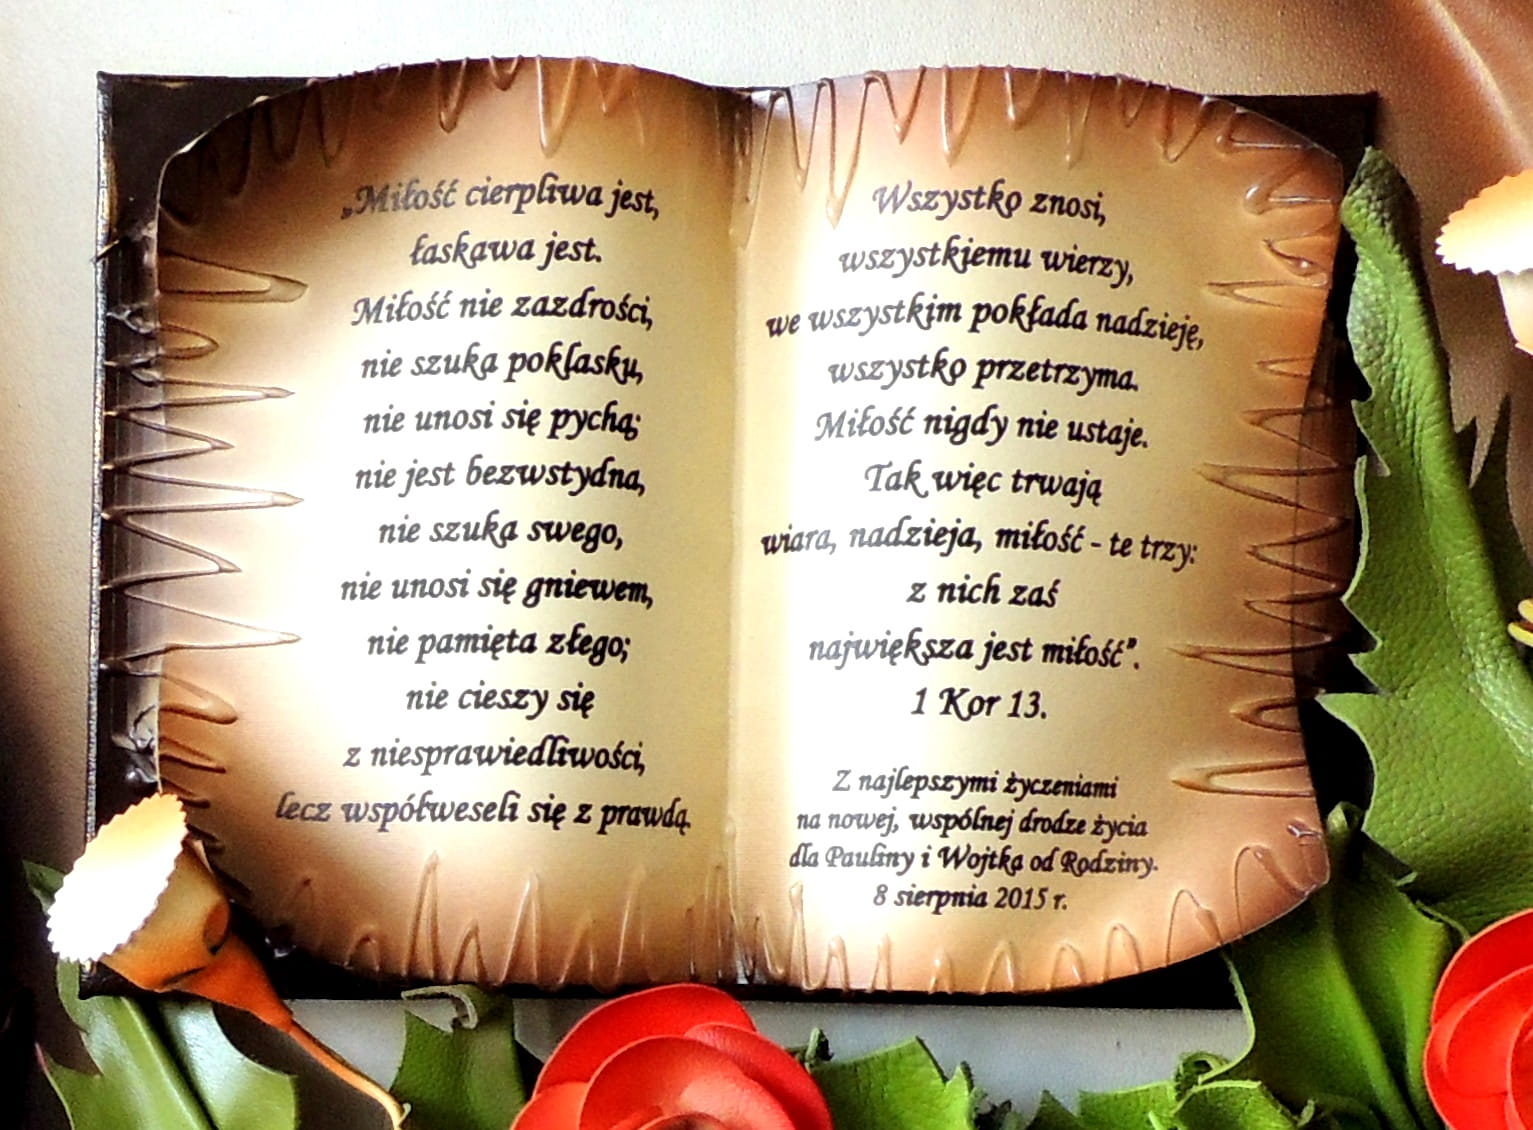 „Miłość cierpliwa jest,
łaskawa jest.
Miłość nie zazdrości,
nie szuka poklasku,
nie unosi się pychą;
nie jest bezwstydna,
nie szuka swego,
nie unosi się gniewem,
nie pamięta złego;
nie cieszy się
z niesprawiedliwości,
lecz współweseli się z prawdą.
Wszystko znosi,
wszystkiemu wierzy,
we wszystkim pokłada nadzieję,
wszystko przetrzyma.
Miłość nigdy nie ustaje.
Tak więc trwają
wiara, nadzieja, miłość - te trzy:
z nich zaś
największa jest miłość”.
1 Kor 13.
Z najlepszymi życzeniami
na nowej, wspólnej drodze życia
dla Pauliny i Wojtka od Rodziny.
8 sierpnia 2015 r.